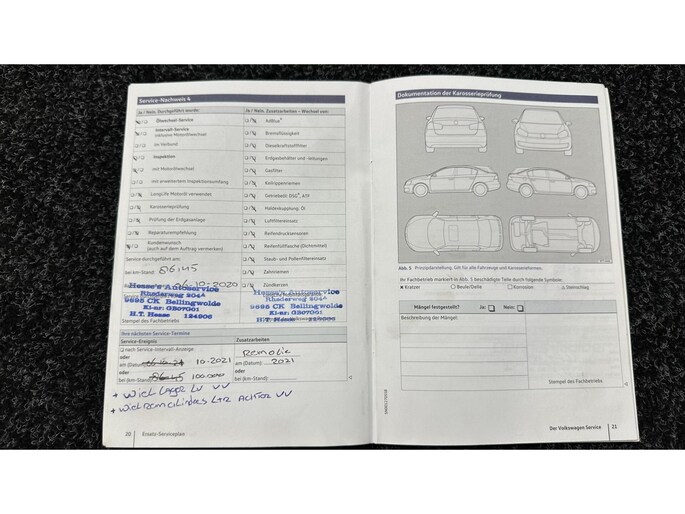 Service-Nachweis 4
Ja / Nein Durchgeführt wurde:
Ölwechsel-Service
Intervall-Service
inklusive Motorölwechsel
im Verbund
Inspektion
mit Motorölwechsel
mit erweitertem Inspektionsumfang
LongLife Motoröl verwendet
Karosserieprüfung
Prüfung der Erdgasanlage
Reparaturempfehlung
Kundenwunsch
(auch auf dem Auftrag vermerken)
Service durchgeführt am:
bei km-Stand: 86145
06-10-2020
Hesse's Autoservice
Rhederweg 204A
9695 CK Bellingwolde
H.T. Hesse
Stempel des Fachbetriebs
Ja / Nein Zusatzarbeiten – Wechsel von:
AdBlue®
Bremsflüssigkeit
Dieselkraftstofffilter
Erdgasbehälter und -leitungen
Gasfilter
Keilrippenriemen
Getriebeöl: DSG®, ATF
Haldexkupplung: Öl
Luftfiltereinsatz
Reifendrucksensoren
Reifenfüllflasche (Dichtmittel)
Staub- und Pollenfiltereinsatz
Zahnriemen
Zündkerzen
Hesse's Autoservice
Rhederweg 204A
9695 CK Bellingwolde
H.T. Hesse
Ihre nächsten Service-Termine
Service-Ereignis
nach Service-Intervall-Anzeige
oder
am (Datum) 10-2021
oder
bei (km-Stand) 100.000
Zusatzarbeiten
Remolie
am (Datum) 2021
oder
bei (km-Stand)
+ Wiel Lager LV VV
+ Wielremcilinders L+R Achter VV
20 Ersatz-Serviceplan
Dokumentation der Karosserieprüfung
Abb. 5 Prinzipdarstellung. Gilt für alle Fahrzeuge und Karosserieformen.
Ihr Fachbetrieb markiert in Abb. 5 beschädigte Teile durch folgende Symbole:
X Kratzer O Beule/Delle □ Korrosion △ Steinschlag
Mängel festgestellt? Ja: Nein:
Beschreibung der Mängel:
Stempel des Fachbetriebs
Der Volkswagen Service 21